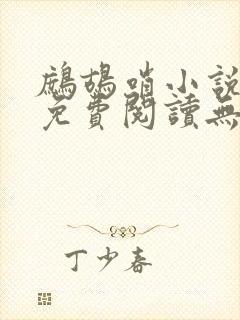 鷓鴣哨小說
免費閱讀無
丁少春